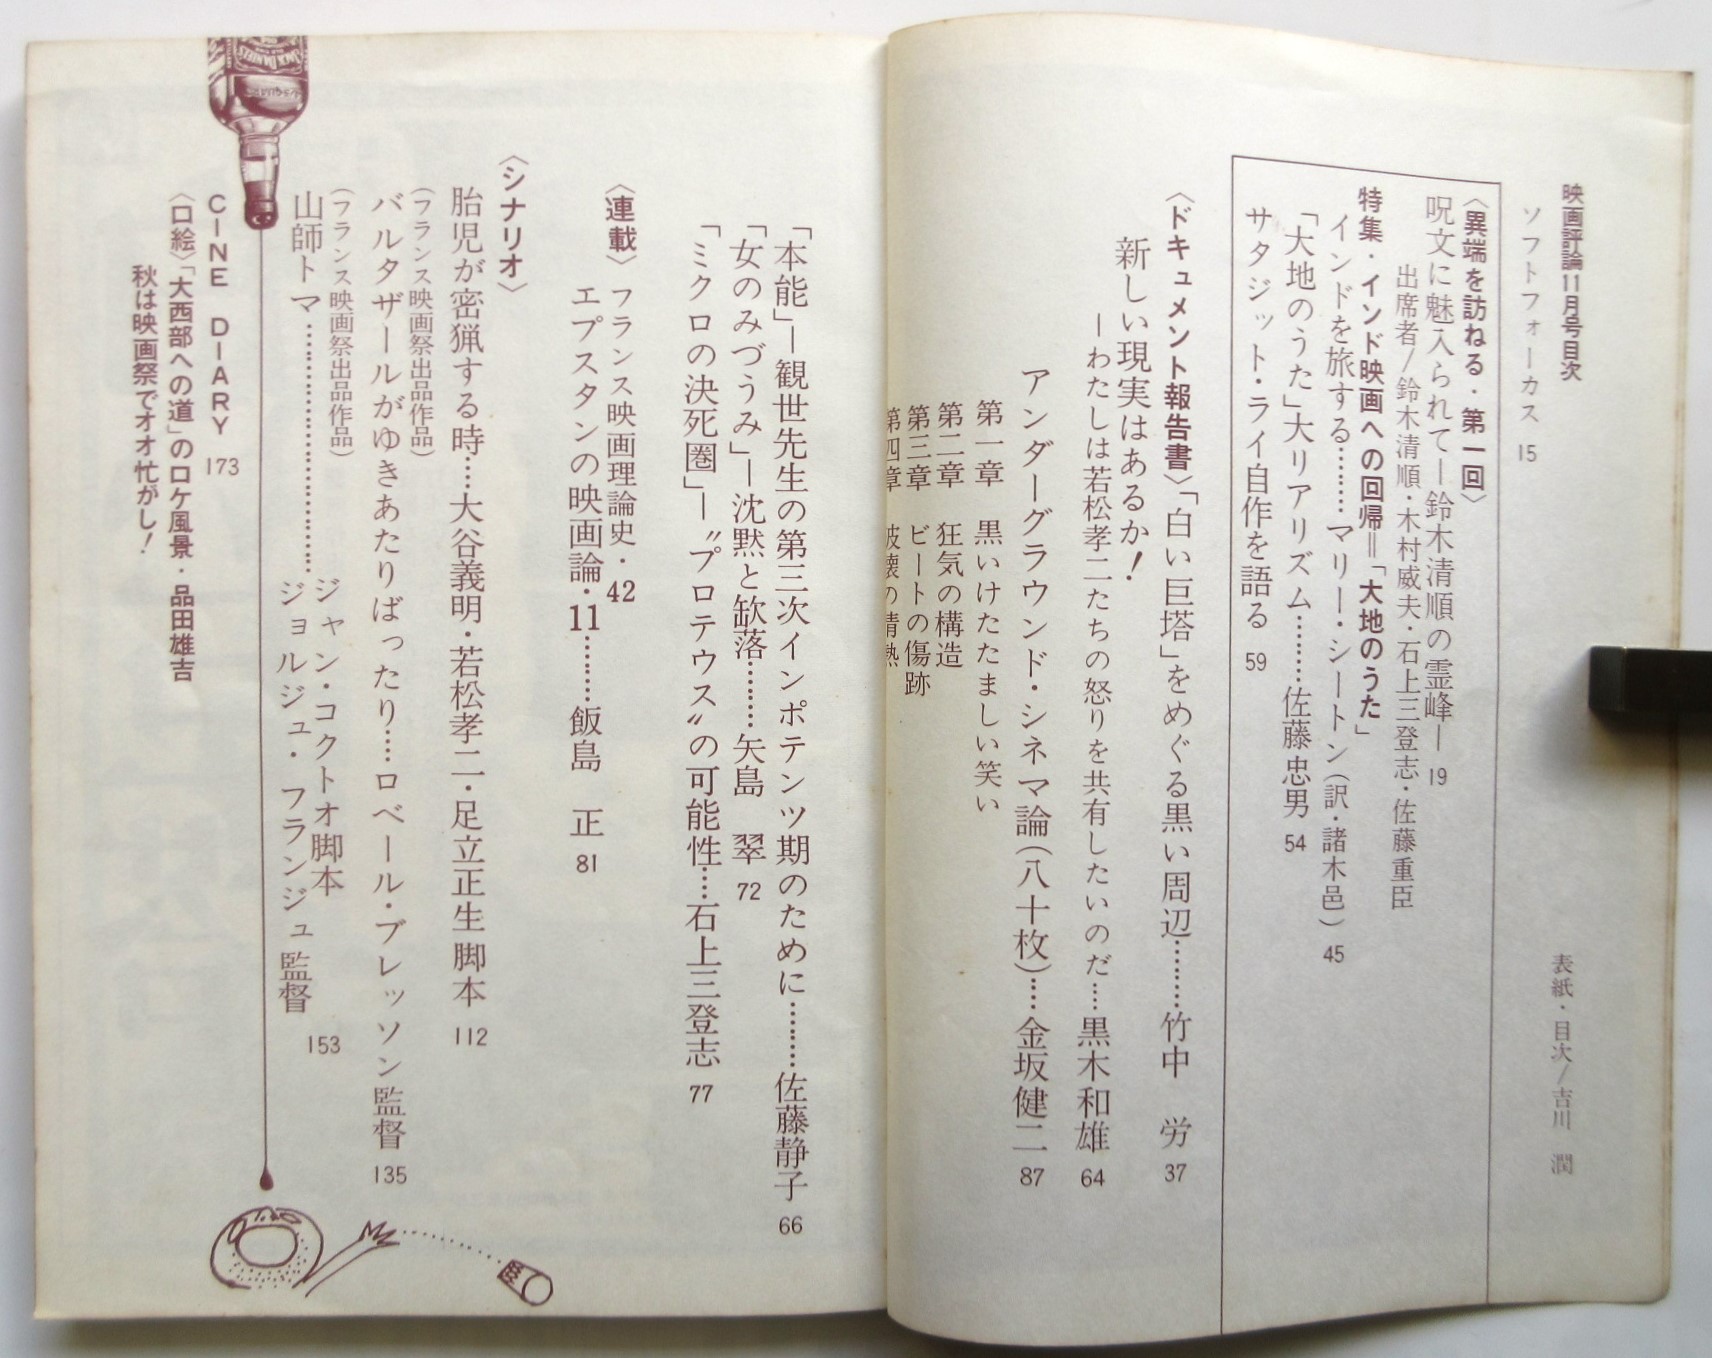 映画評論11月号目次
表紙・目次/吉川 潤
ソフトフォーカス 15
〈異端を訪ねる・第一回〉
呪文に魅入られて―鈴木清順の霊峰― 19
出席者/鈴木清順・木村威夫・石上三登志・佐藤重臣
特集・インド映画への回帰=「大地のうた」
インドを旅する………マリー・シートン(訳・諸木邑) 45
「大地のうた」大リアリズム………佐藤忠男 54
サタジット・ライ自作を語る 59
〈ドキュメント報告書〉「白い巨塔」をめぐる黒い周辺………竹中 労 37
新しい現実はあるか!
―わたしは若松孝二たちの怒りを共有したいのだ……黒木和雄 64
アンダーグラウンド・シネマ論(八十枚)……金坂健二 87
第一章 黒いけたたましい笑い
第二章 狂気の構造
第三章 ビートの傷跡
第四章 破壊の情熱
「本能」―観世先生の第三次インポテンツ期のために………佐藤静子 66
「女のみづうみ」―沈黙と欠落………矢島 翠 72
「ミクロの決死圏」―〝プロテウス〟の可能性……石上三登志 77
〈連載〉フランス映画理論史・42
エプスタンの映画論・11………飯島 正 81
〈シナリオ〉
胎児が密猟する時……大谷義明・若松孝二・足立正生 脚本 112
(フランス映画祭出品作品)
バルタザールがゆきあたりばったり……ロベール・ブレッソン監督 135
(フランス映画祭出品作品)
山師トマ…………………………
ジャン・コクトオ脚本
ジョルジュ・フランジュ監督 153
CINE DIARY 173
〈口絵〉「大西部への道」のロケ風景・品田雄吉
秋は映画祭でオオ忙がし!
JACK DANIEL'S